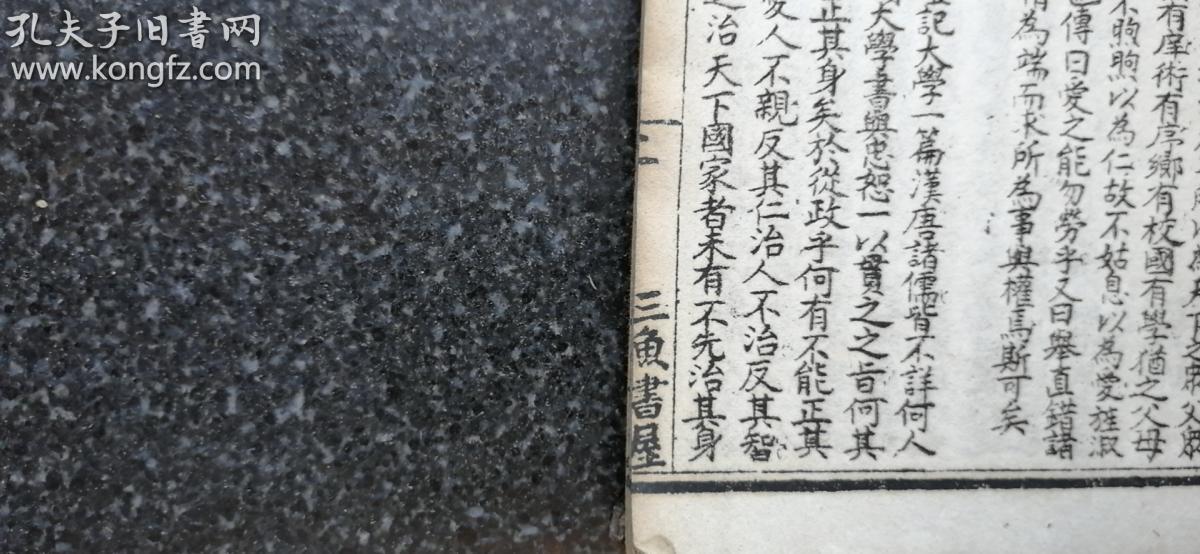 孔夫子旧书网
www.kongfz.com
有庠術有序鄉有校國有學猶之父母
不煦煦以為仁故不姑息以為愛旌淑
傳曰愛之能勿勞乎又曰舉直錯諸
為端而求所為事與權焉斯可矣
記大學一篇漢唐諸儒皆不詳何人
大學書與忠恕一以貫之之旨何其
正其身矣於從政乎何有不能正其
愛人不親反其仁治人不治反其智
之治天下國家者未有不先治其身
三魚書屋